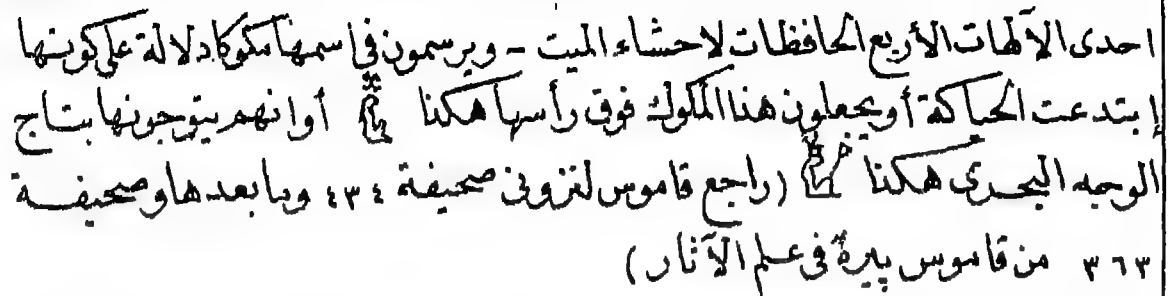 احدى الآلهات الأربع الحافظات لاحشاء الميت - ويرسمون في اسمها مكوكا دلالة على كونها
إبتدعت الحياكة أو يجعلون هذا المكوك فوق رأسها هكذا أو انهم يتوجونها بتاج
الوجه البحرى هكذا (راجع قاموس لنزونى صحيفة ٤٣٤ وما بعدها وصحيفة
٣٦٣ من قاموس بيرة فى علم الآثار)